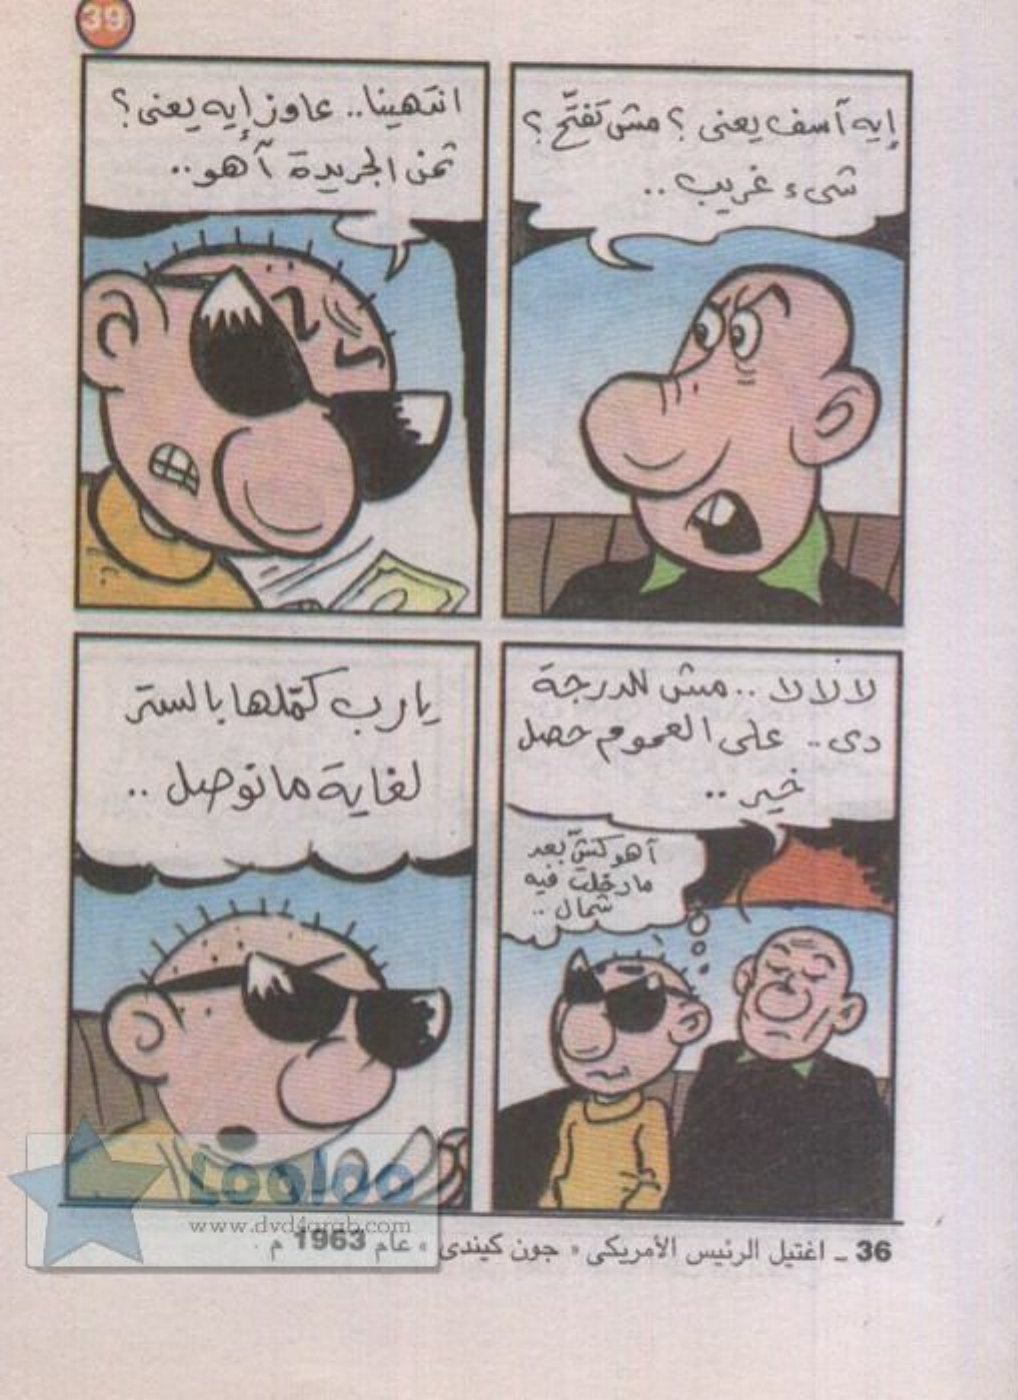 39
إيه آسف يعنى ؟ مش تفتَّح ؟
شىء غريب ..
انتهينا.. عاوز إيه يعنى ؟
ثمن الجريدة آهو..
لا لا لا .. مش للدرجة
دى .. على العموم حصل
خير ..
آهو كنشّ بعد
ما دخلت فيه
شمال ..
يارب كمّلها بالستر
لغاية ما نوصل ..
36 ـ اغتيل الرئيس الأمريكى « جون كيندى » عام 1963 م .
Looloo
www.dvd4arab.com